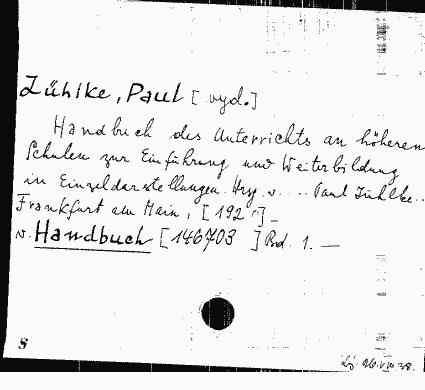 Zühlke, Paul [vyd.]
Handbuch des Unterrichts an höheren
Schulen zur Einführung und Weiterbildung
in Einzeldarstellungen. Hrg. v. ... Paul Zühlke...
Frankfurt am Main, [192 ] -
v. Handbuch [146703 ] Bd. 1. —
8